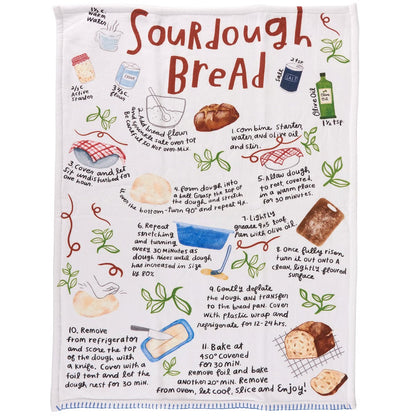 1½ c
warm
water
SOURDOUGH
BREAD
2 tsp
SALT
Olive Oil
1½ tsp
Active
Starter
3½ c.
flour
2. Add bread flour
and sprinkle salt over top
be careful to not over-mix.
1. Combine starter,
water and olive oil
and stir.
3. Cover and let
sit undisturbed for
one hour.
4. Form dough into
a ball. Grasp the top of
the dough, and stretch
it over the bottom - turn 90° and repeat 4x.
5. Allow dough
to rest covered
in a warm place
for 30 minutes.
6. Repeat
stretching
and turning
every 30 minutes as
dough rises until dough
has increased in size
by 80%
7. Lightly
grease 9x5 loaf
pan with olive oil.
8. Once fully risen
turn it out onto a
clean, lightly floured
surface.
9. Gently deflate
the dough and transfer
to the bread pan. Cover
with plastic wrap and
refrigerate for 12-24 hrs.
10. Remove
from refrigerator
and score the top
of the dough with
a knife. Cover with a
foil tent and let the
dough rest for 30 min.
11. Bake at
450° covered
for 30 min.
Remove foil and bake
another 20° min. Remove
from oven, let cool, slice and Enjoy!